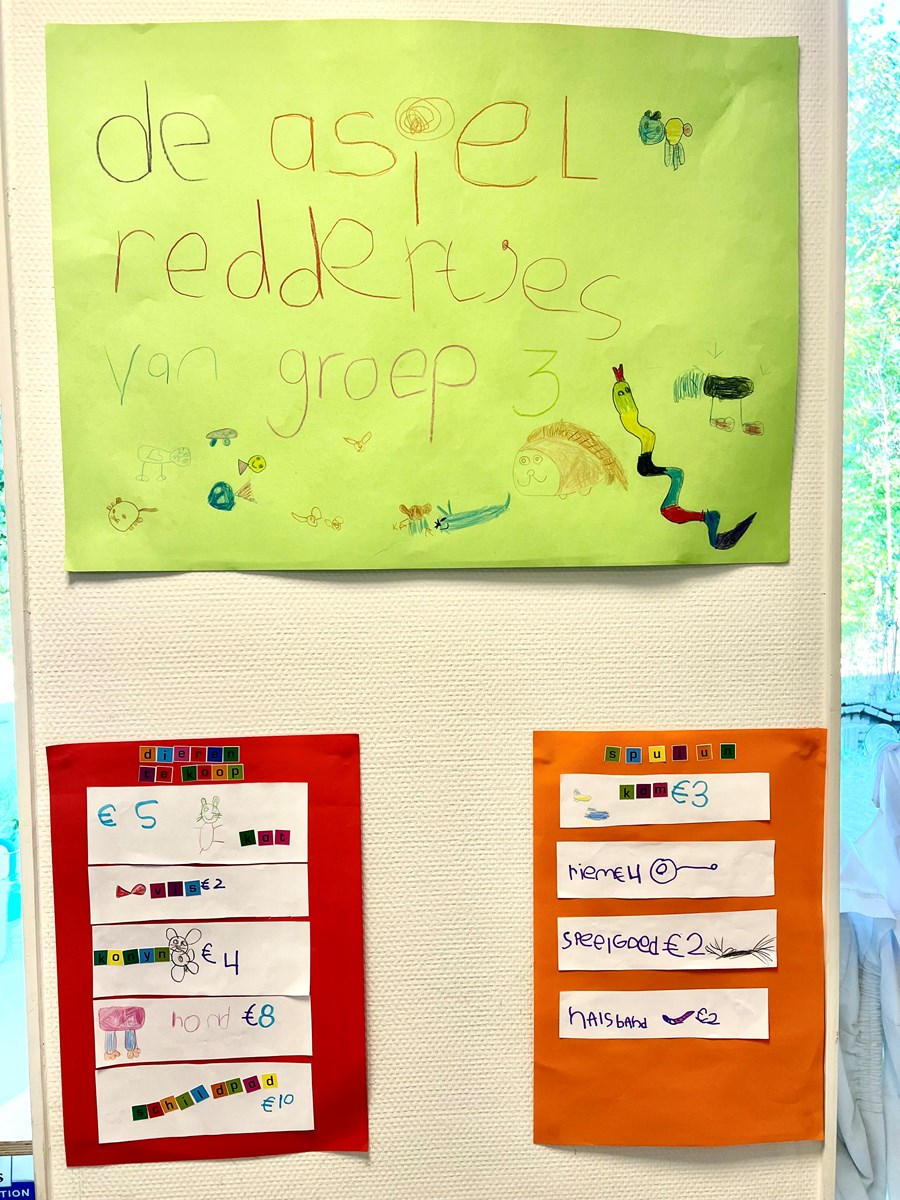 de asiel
reddertjes
van groep 3
dieren
te koop
€ 5 kat
vis €2
konyn € 4
hond €8
schildpad
€10
spulun
kam €3
riem €4
speelgoed €2
HALSband €2
TION